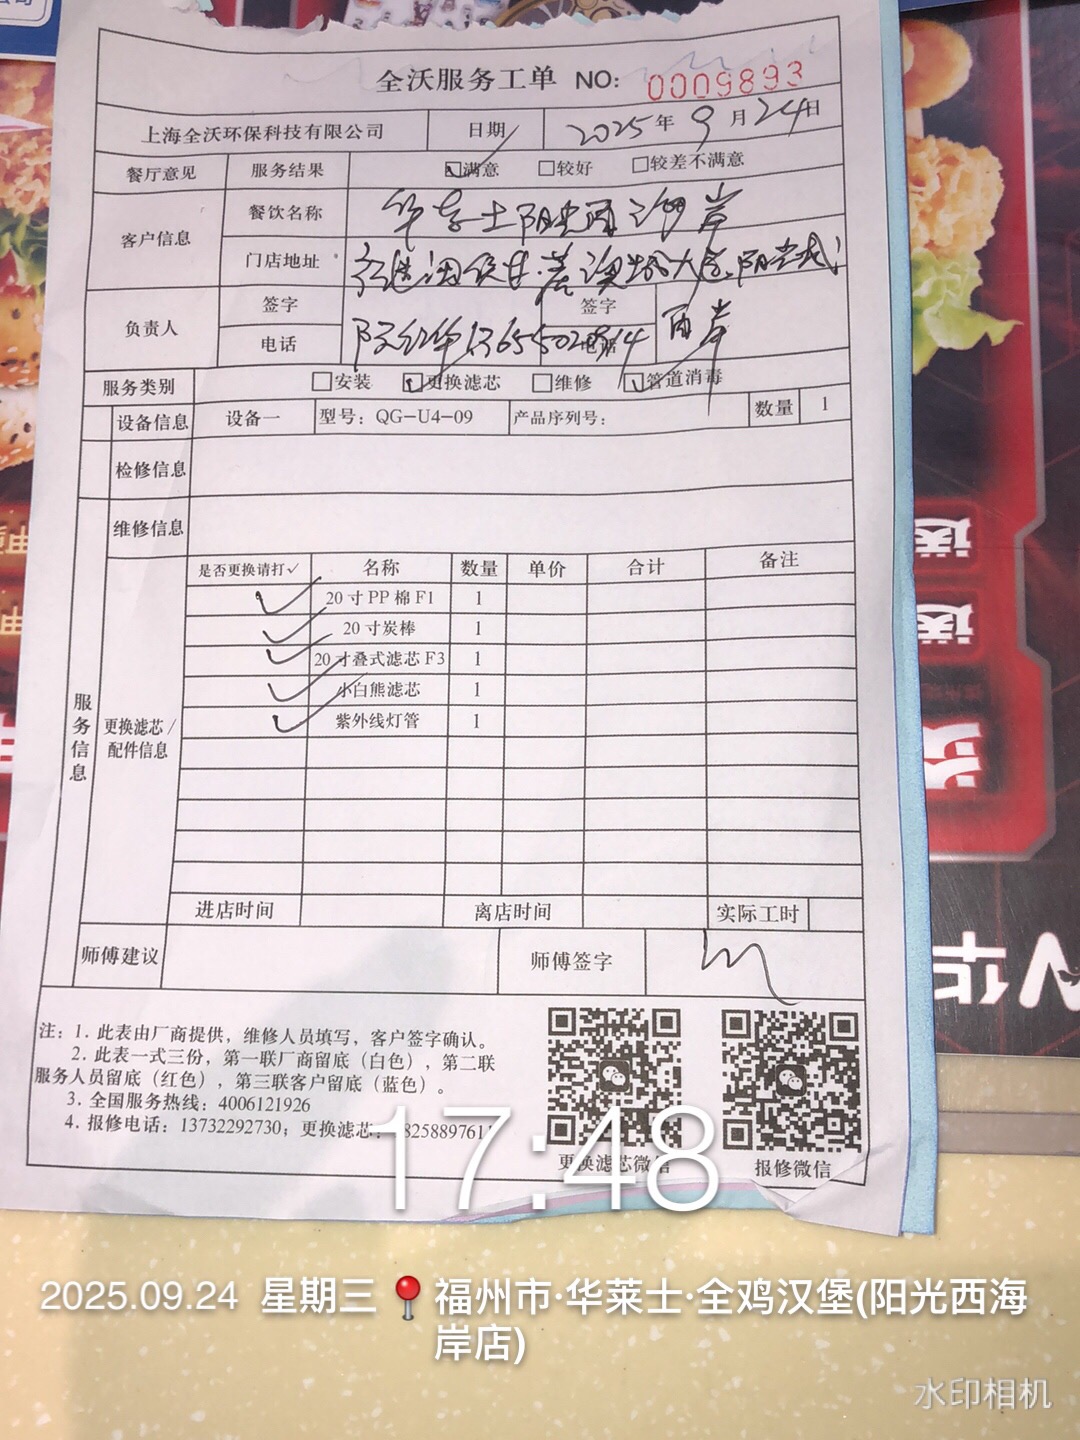 全沃服务工单 NO: 0009893
上海全沃环保科技有限公司 日期 2025年9月24日
餐厅意见 服务结果 ☑满意 □较好 □较差不满意
客户信息 餐饮名称 华莱士阳光西海岸
门店地址
负责人 签字 签字
电话 电话
西岸
服务类别 □安装 ☑更换滤芯 □维修 ☑管道消毒
设备信息 设备一 型号：QG-U4-09 产品序列号： 数量 1
检修信息
维修信息
服务信息
更换滤芯/配件信息
是否更换请打✓ 名称 数量 单价 合计 备注
✓ 20寸PP棉F1 1
✓ 20寸炭棒 1
✓ 20寸叠式滤芯F3 1
✓ 小白熊滤芯 1
✓ 紫外线灯管 1
进店时间 离店时间 实际工时
师傅建议 师傅签字
注：1. 此表由厂商提供，维修人员填写，客户签字确认。
2. 此表一式三份，第一联厂商留底（白色），第二联
服务人员留底（红色），第三联客户留底（蓝色）。
3. 全国服务热线：4006121926
4. 报修电话：13732292730；更换滤芯：
更换滤芯微信 报修微信
17:48
2025.09.24 星期三 福州市·华莱士·全鸡汉堡(阳光西海
岸店)
水印相机
送
送
华